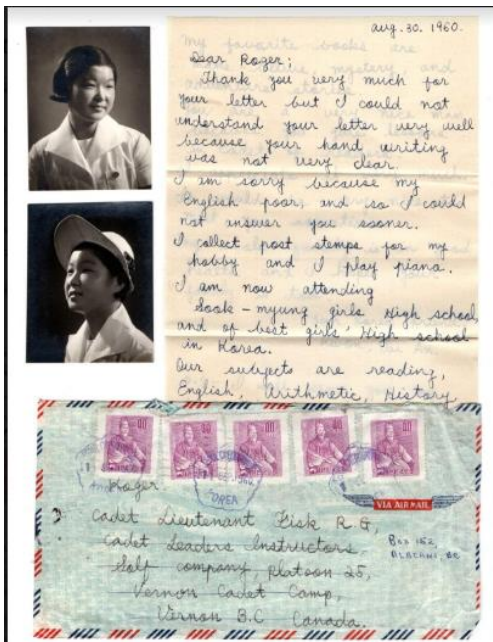 aug. 30. 1960.
My favourite books are
mystery and
Dear Roger;
Thank you very much for
your letter but I could not
understand your letter very well
because your hand writing
was not very clear.
I am sorry because my
English poor, and so I could
not answer you sooner.
I collect post stemps for my
hobby and I play piana.
I am now attending
Sook - myung girls High school
and of best girls' High school
in Korea.
Our subjects are reading,
English, Arithmetic, History
80 40 80 40 80
KOREA
VIA AIR MAIL
Roger
Cadet Lieutenant Fisk R.G,
Cadet Leaders Instructors,
Golf company, platoon 25,
Vernon Cadet Camp,
Vernon B.C Canada.
Box 162,